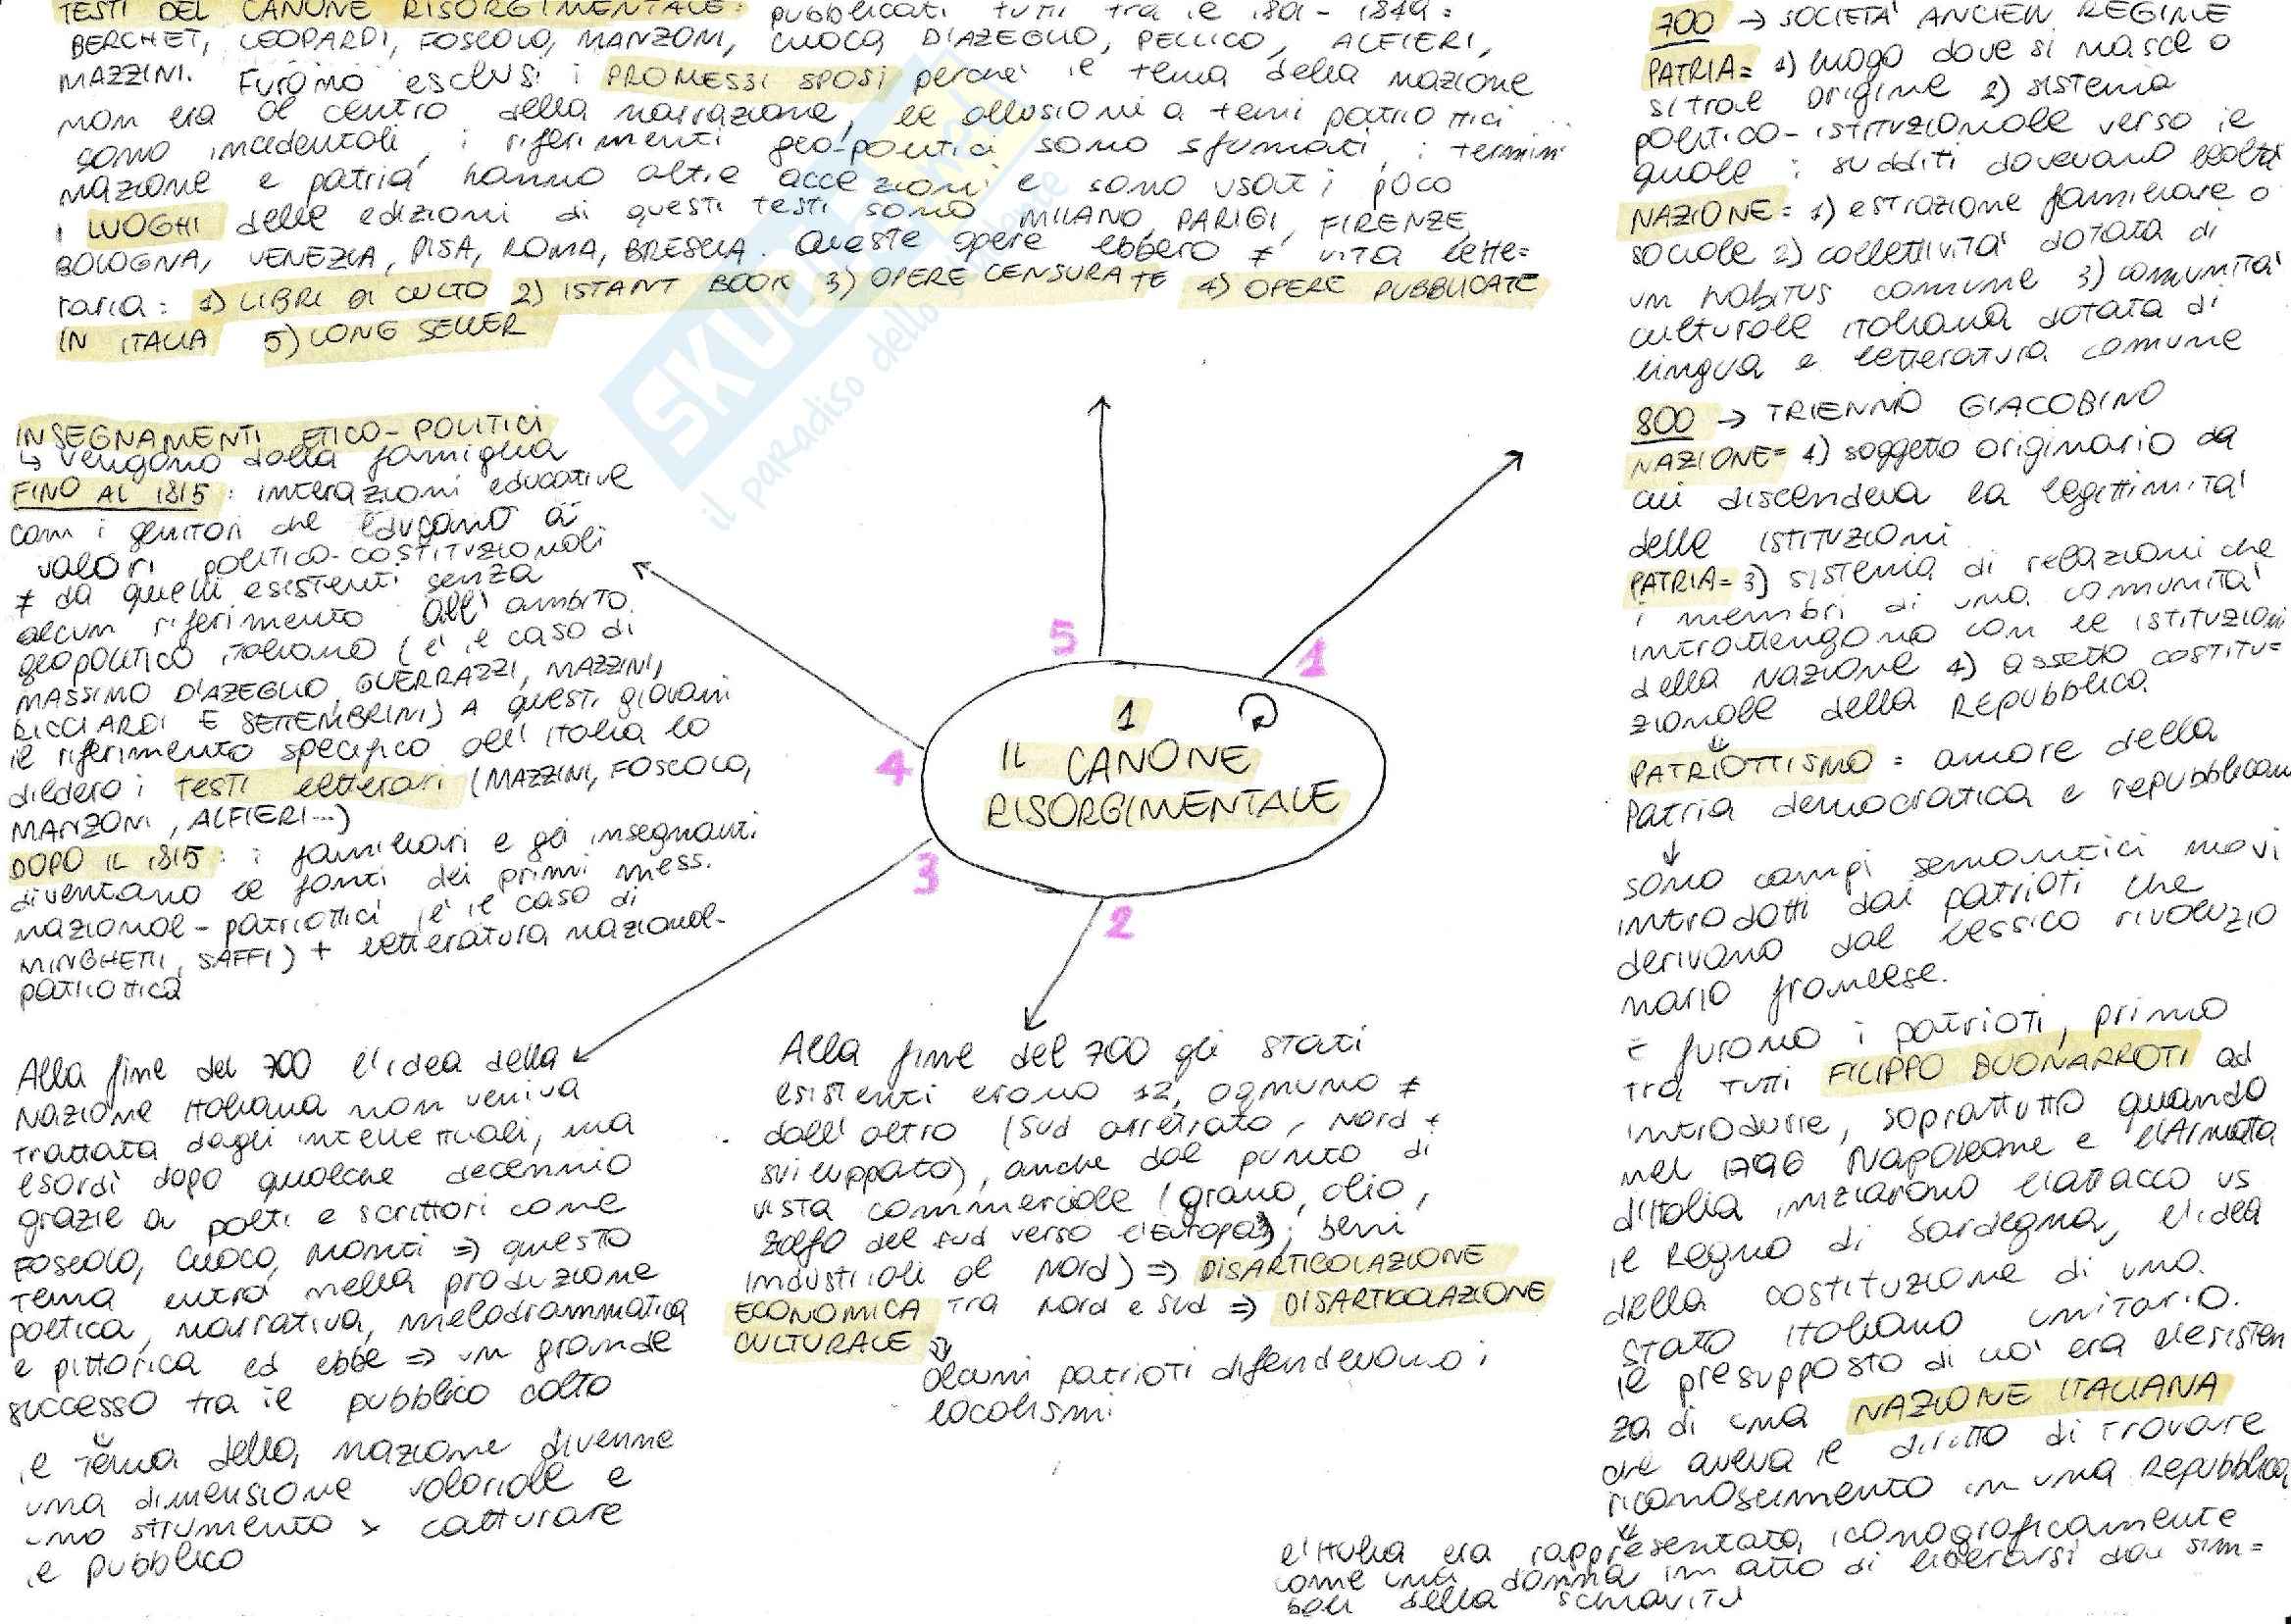 TESTI DEL CANONE RISORGIMENTALE: pubblicati tutti tra il 1801-1849:
BERCHET, LEOPARDI, FOSCOLO, MANZONI, CUOCO, D'AZEGLIO, PELLICO, ALFIERI,
MAZZINI. Furono esclusi i PROMESSI SPOSI perché il tema della nazione
non era al centro della narrazione, le allusioni a temi patriottici
sono incidentali, i riferimenti geo-politici sono sfumati, i termini
nazione e patria hanno altre accezioni e sono usati poco
i LUOGHI delle edizioni di questi testi sono MILANO, PARIGI, FIRENZE,
BOLOGNA, VENEZIA, PISA, ROMA, BRESCIA. Queste opere ebbero ≠ vita lette=
raria: 1) LIBRI DI CULTO 2) ISTANT BOOK 3) OPERE CENSURATE 4) OPERE PUBBLICATE
IN ITALIA 5) LONG SELLER
SKUOLA
il paradiso dello studente
INSEGNAMENTI ETICO-POLITICI
↳ vengono dalla famiglia
FINO AL 1815: interazioni educative
con i genitori che educano a
valori politico-costituzionali
≠ da quelli esistenti senza
alcun riferimento all'ambito
geopolitico italiano (è il caso di
MASSIMO D'AZEGLIO, GUERRAZZI, MAZZINI,
RICCIARDI E SETTEMBRINI) A questi giovani
il riferimento specifico all'Italia lo
diedero i testi letterari (MAZZINI, FOSCOLO,
MANZONI, ALFIERI...)
DOPO IL 1815: i familiari e gli insegnanti
diventano le fonti dei primi mess.
nazional-patriottici (è il caso di
MINGHETTI, SAFFI) + letteratura nazional-
patriottica
Alla fine del 700 l'idea della
Nazione italiana non veniva
trattata dagli intellettuali, ma
esordì dopo qualche decennio
grazie a poeti e scrittori come
FOSCOLO, CUOCO, MONTI ⇒ questo
tema entra nella produzione
poetica, narrativa, melodrammatica
e pittorica ed ebbe ⇒ un grande
successo tra il pubblico colto
⇓
il tema della nazione divenne
una dimensione valoriale e
uno strumento x catturare
il pubblico
5
1
4
3
2
1
IL CANONE
RISORGIMENTALE
Alla fine del 700 gli stati
esistenti erano 12, ognuno ≠
dall'altro (sud arretrato, nord +
sviluppato), anche dal punto di
vista commerciale (grano, olio,
zolfo del sud verso l'Europa); beni
industriali al Nord) ⇒ DISARTICOLAZIONE
ECONOMICA tra nord e sud ⇒ DISARTICOLAZIONE
CULTURALE ⇓
alcuni patrioti difendevano i
localismi
700 → SOCIETA' ANCIEN REGIME
PATRIA= 1) luogo dove si nasce o
si trae origine 2) sistema
politico-istituzionale verso il
quale i sudditi dovevano lealtà
NAZIONE= 1) estrazione familiare o
sociale 2) collettività dotata di
un habitus comune 3) comunità
culturale italiana dotata di
lingua e letteratura comune
800 → TRIENNIO GIACOBINO
NAZIONE= 4) soggetto originario da
cui discendeva la legittimità
delle istituzioni
PATRIA= 3) sistema di relazioni che
i membri di una comunità
intrattengono con le istituzioni
della nazione 4) assetto costitu=
zionale della Repubblica.
⇓
PATRIOTTISMO = amore della
patria democratica e repubblicana
↓
sono campi semantici nuovi
introdotti dai patrioti che
derivano dal lessico rivoluzio
nario francese.
= furono i patrioti, primo
tra tutti FILIPPO BUONARROTI ad
introdurre, soprattutto quando
nel 1796 Napoleone e l'Armata
d'Italia iniziarono l'attacco vs
il Regno di Sardegna, l'idea
della costituzione di uno
stato italiano unitario.
il presupposto di ciò era l'esisten
za di una NAZIONE ITALIANA
che aveva il diritto di trovare
riconoscimento in una Repubblica
⇓
l'Italia era rappresentata iconograficamente
come una donna in atto di liberarsi dai sim=
boli della schiavitù